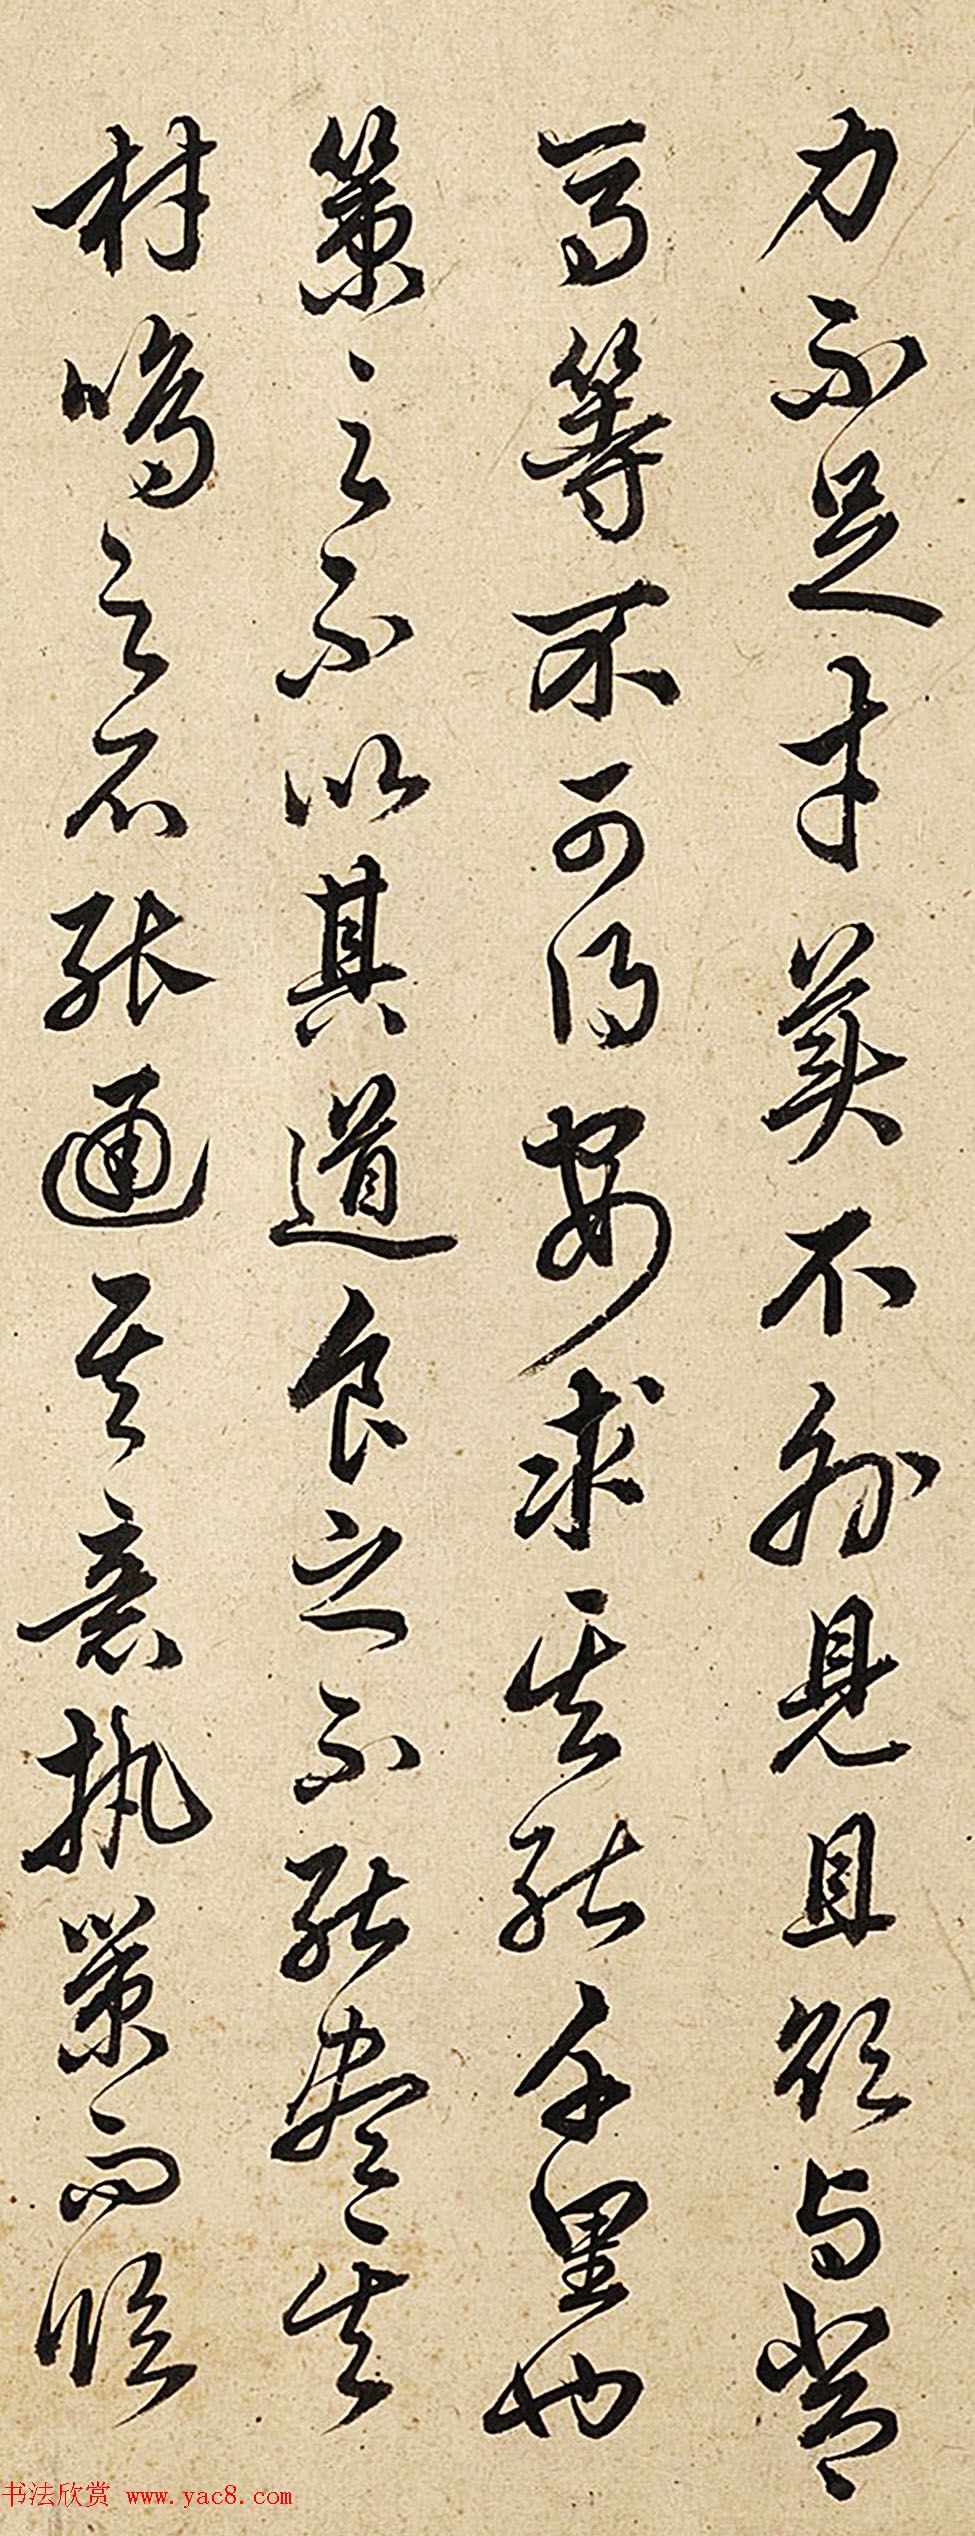 力不足才美不外見且欲与常
馬等不可得安求其能千里也
策之不以其道食之不能盡其
材鳴之不能通其意执策而臨
书法欣赏 www.yac8.com